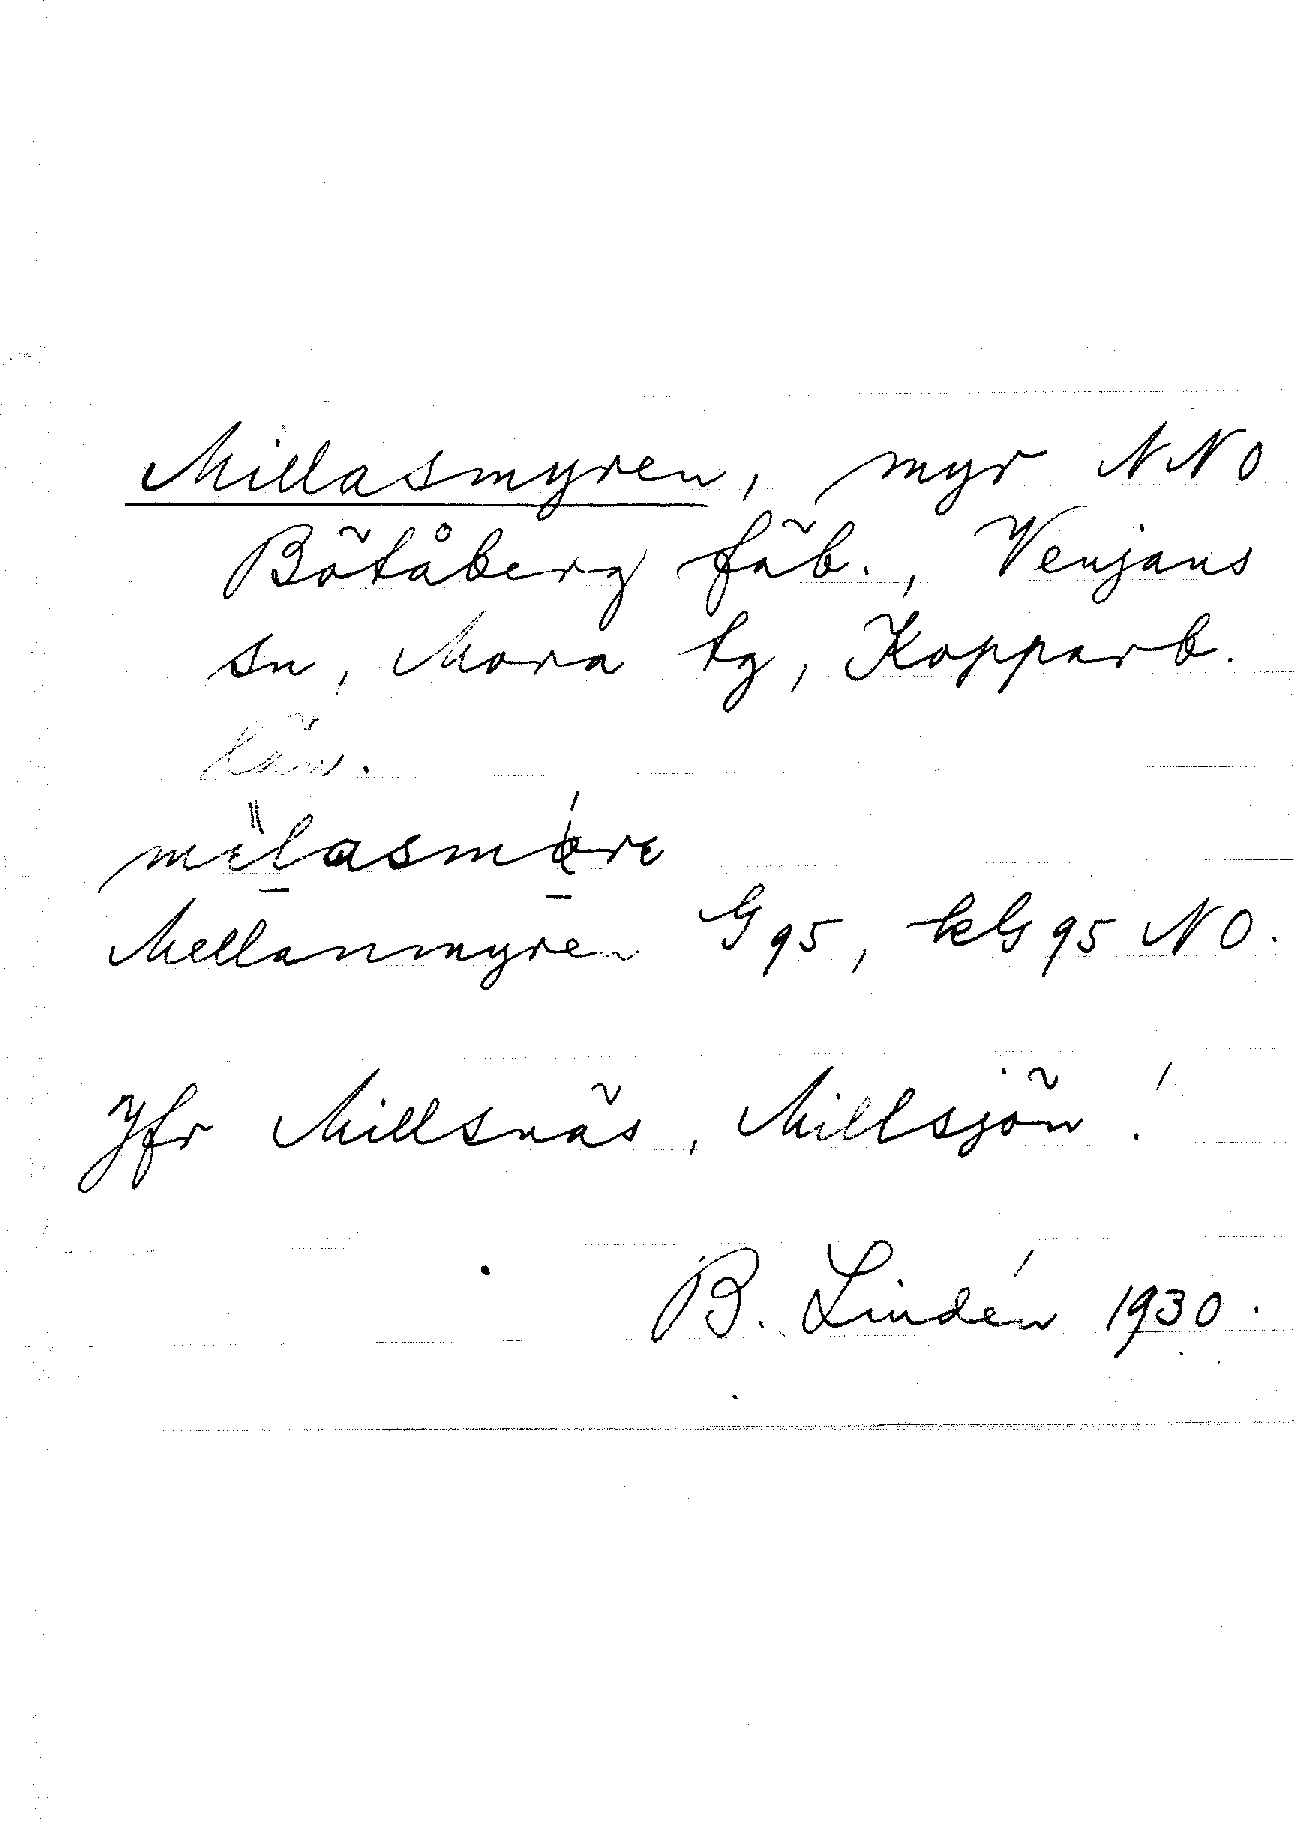 Millasmyren, myr NNO
Bötåberg fäb., Venjans
sn, Mora tg, Kopparb.
län.
Mellanmyren G 95, kG 95 NO.
Jfr Millsnäs, Millsjön!
B. Lindén 1930.